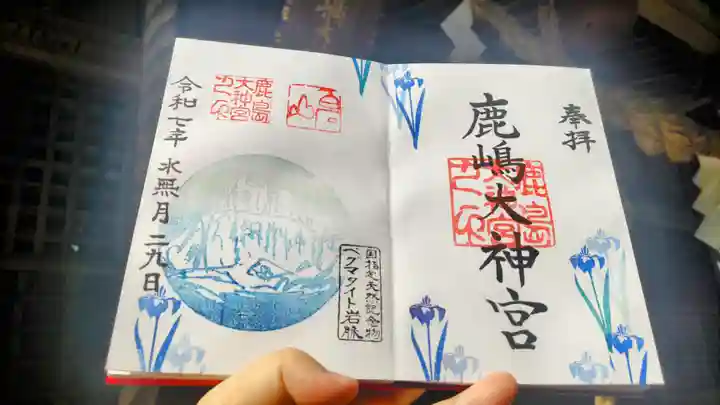 奉拝
鹿嶋大神宮
鹿島
大神宮
之印
国指定天然記念物
ペグマタイト岩脈
令和七年 水無月 二九日